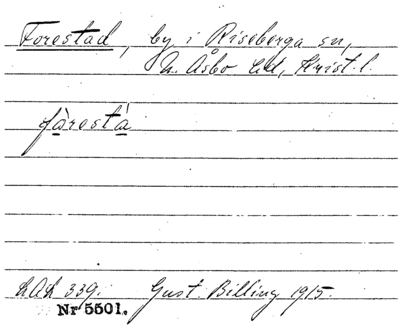 Forestad, by i Riseberga sn,
N. Åsbo hd, Krist. l.
fàrestá
LAL 339. Gust. Billing 1915.
Nr 5501.